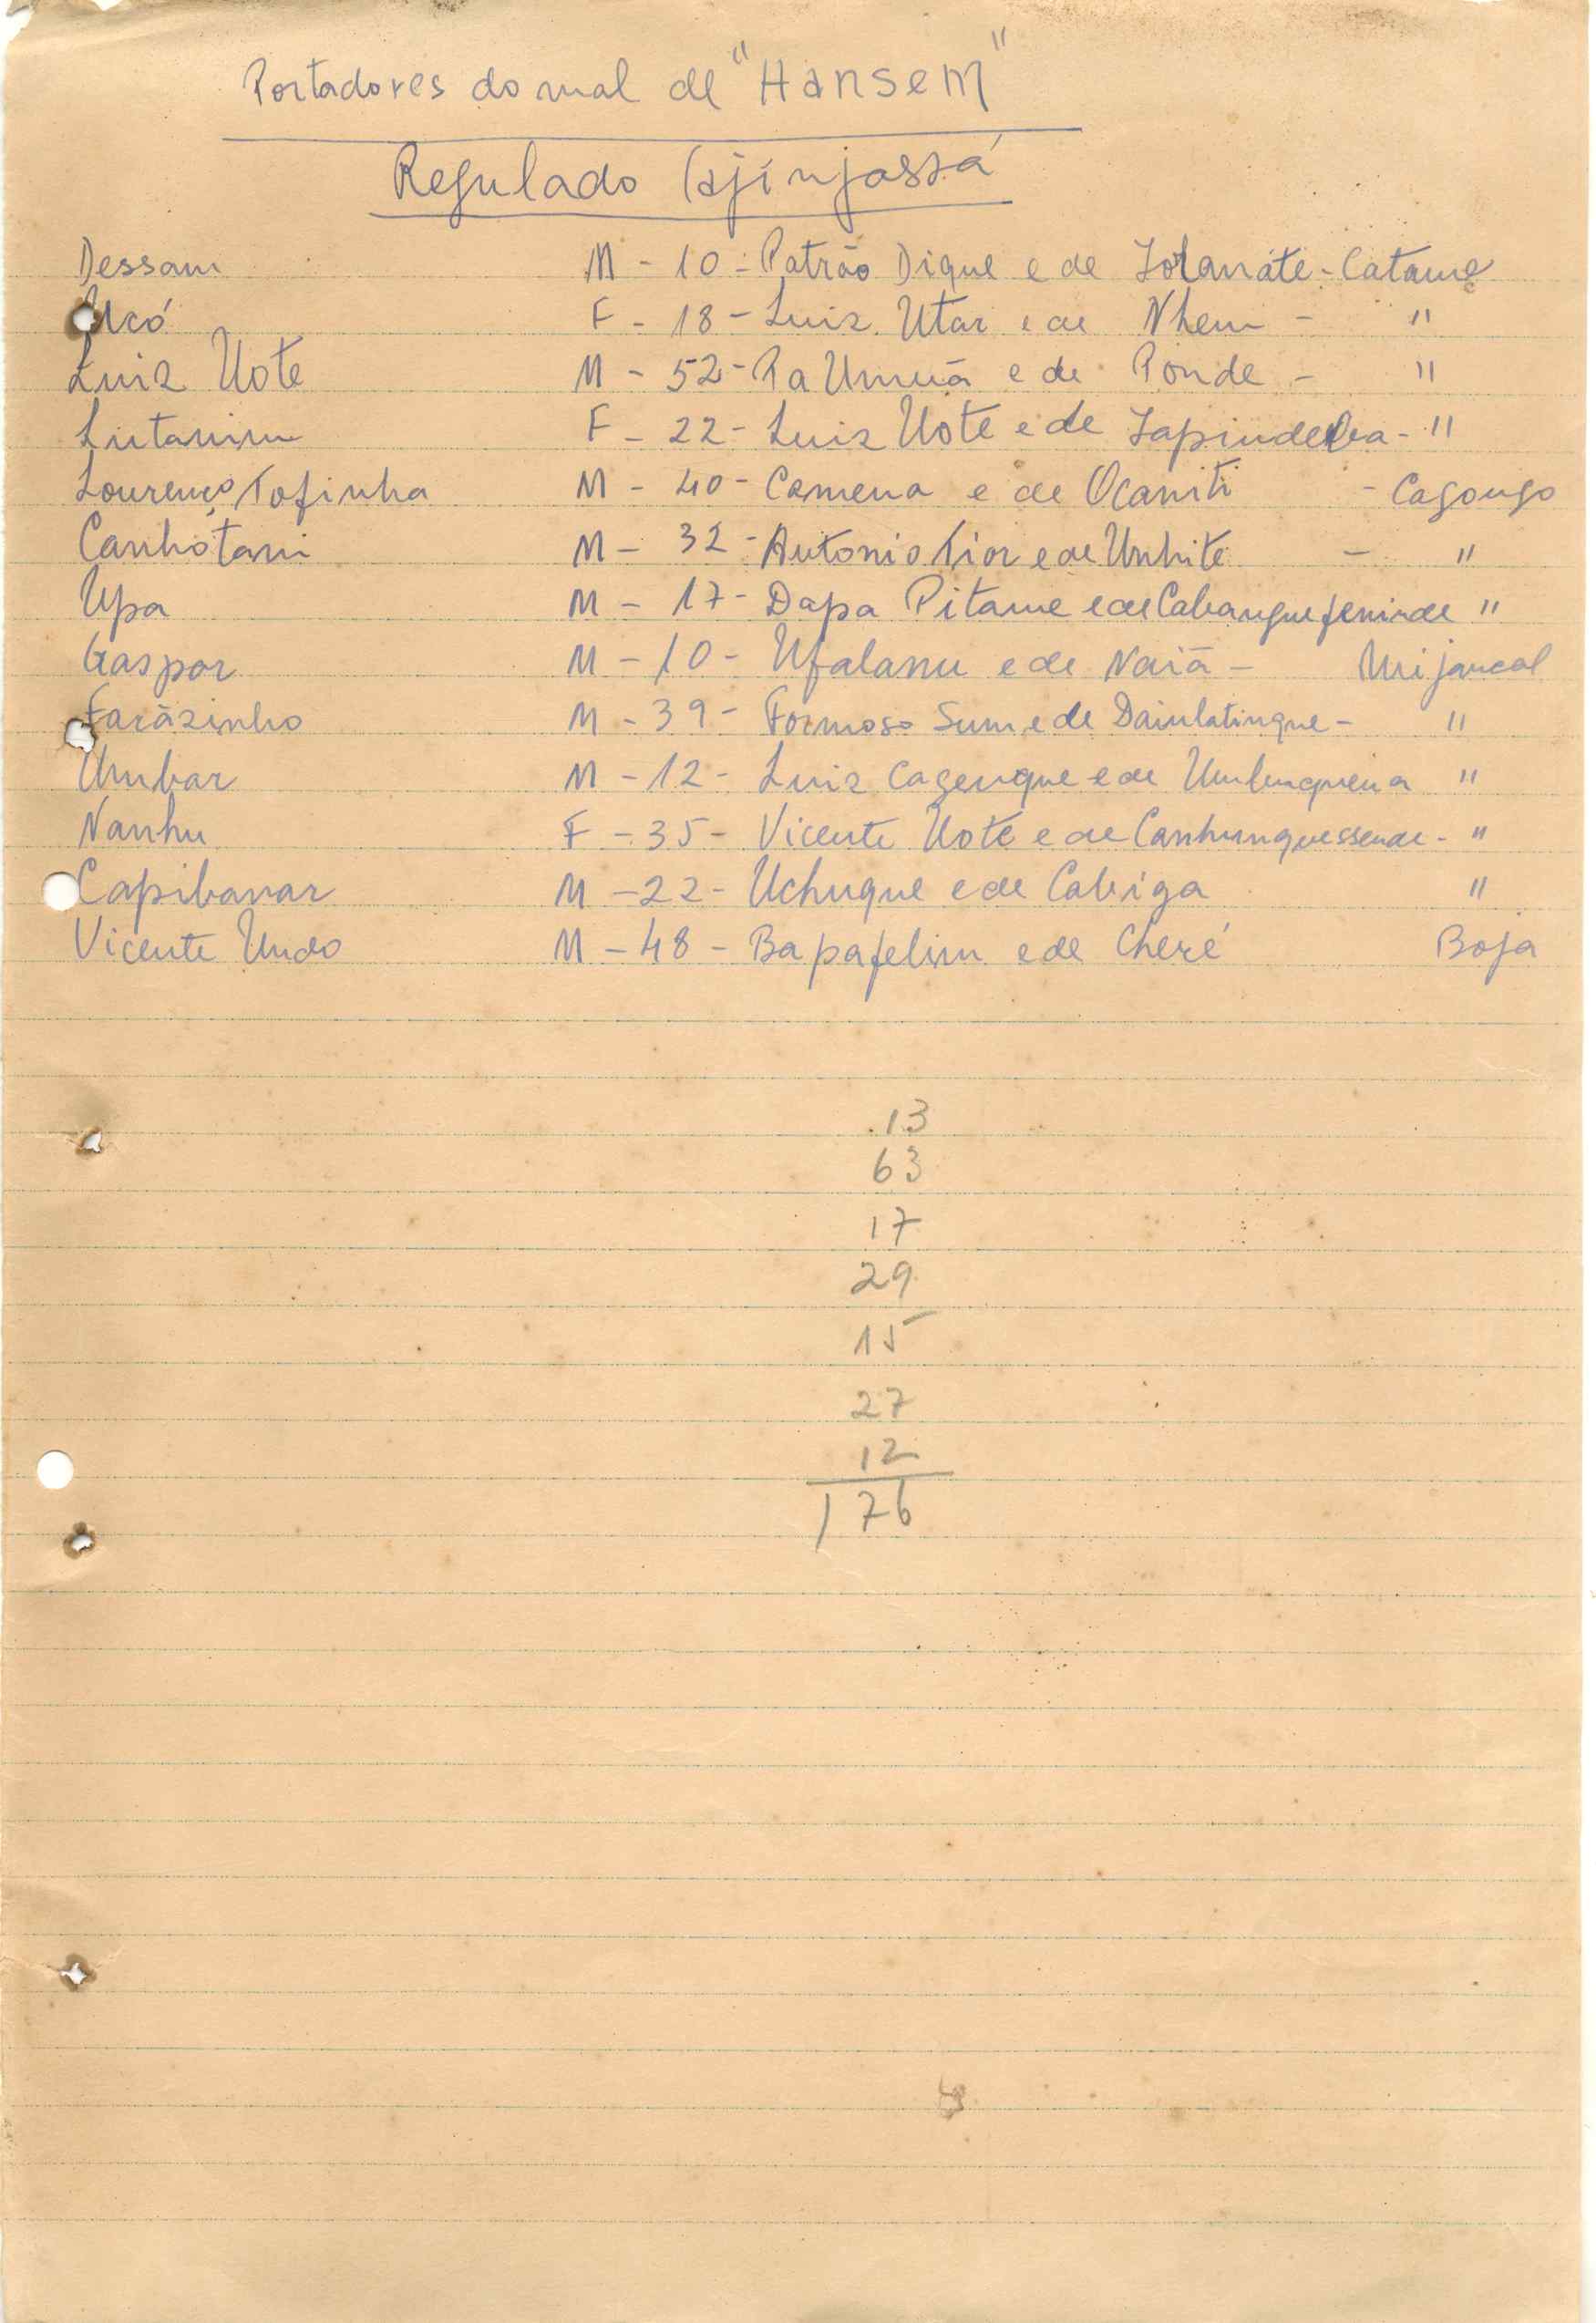 Portadores do mal de "Hansem"
Regulado
Dessam M - 10 - Patrão Dique e de - Catame
Ucó F - 18 - Luiz Utar e de Nhem - "
Luiz Uote M - 52 - Pa Umuã e de Ponde - "
F - 22 - Luiz Uote e de - "
Lourenço Tofinha M - 40 - Camena e de Ocaniti - Cagongo
Canhótani M - 32 - Antonio Tior e de Unhite - "
Upa M - 17 - Dapa Pitame e de "
Gaspar M - 10 - Ufalanu e de Naiã -
Farãzinho M - 39 - Formoso Sum e de - "
Umbar M - 12 - Luiz Cagenque e de "
Nanhu F - 35 - Vicente Uote e de - "
Capibanar M - 22 - Uchuque e de Cabiga "
Vicente Undo M - 48 - Bapafelim e de Cheré Boja
13
63
17
29
15
27
12
176